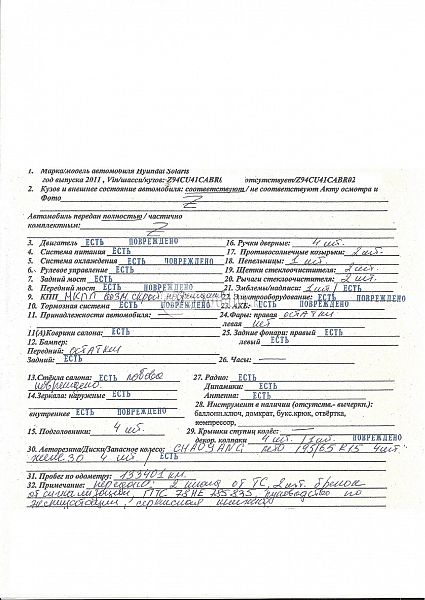 1. Марка/модель автомобиля Hyundai Solaris
год выпуска 2011 , Vin/шасси/кузов: Z94CU41CABR отсутствует/Z94CU41CABR02
2. Кузов и внешнее состояние автомобиля: соответствуют / не соответствуют Акту осмотра и
Фото Z
Автомобиль передан полностью / частично
комплектным: Z
3. Двигатель ЕСТЬ ПОВРЕЖДЕНО
4. Система питания ЕСТЬ
5. Система охлаждения ЕСТЬ ПОВРЕЖДЕНО
6. Рулевое управление ЕСТЬ
7. Задний мост ЕСТЬ
8. Передний мост ЕСТЬ ПОВРЕЖДЕНО
9. КПП МКПП возм скрыт
10. Тормозная система ЕСТЬ ПОВРЕЖДЕНО
11. Принадлежности автомобиля: —
11(А)Коврики салона: ЕСТЬ
12. Бампер:
Передний: остатки
Задний: ЕСТЬ
13.Стёкла салона: ЕСТЬ лобовое
повреждено.
14.Зеркала: наружные ЕСТЬ
внутреннее ЕСТЬ ПОВРЕЖДЕНО
15. Подголовники: 4 шт.
16. Ручки дверные: 4 шт.
17. Противосолнечные козырьки: 2 шт.
18. Пепельницы: 1 шт.
19. Щетки стеклоочистителя: 2 шт.
20. Рычаги стеклоочистителя: 2 шт.
21. Эмблемы/надписи: 1 шт / ЕСТЬ
22. Электрооборудование: ЕСТЬ ПОВРЕЖДЕНО
23. АКБ: ПОВРЕЖДЕНО
24.Фары: правая остатки
левая нет
25. Задние фонари: правый ЕСТЬ
левый ЕСТЬ
26. Часы: —
27. Радио: ЕСТЬ
Динамики: ЕСТЬ
Антенна: ЕСТЬ
28. Инструмент в наличии (отсутств.- вычеркн.):
баллонн.ключ, домкрат, букс.крюк, отвёртка,
компрессор,
29. Крышки ступиц колёс: —
декор. колпаки 4 шт. / 1 шт. ПОВРЕЖДЕНО
30. Авторезина/Диски/Запасное колесо: CHAOYANG лето 195/65 R15 4 шт.
железо 4 шт. / ЕСТЬ
31. Пробег по одометру: 133401 км.
32. Примечание: передано: 2 ключа от ТС, 2 шт. брелок
от сигнализации, ПТС 78 НЕ 785835, руководство по
эксплуатации, сервисная книжка